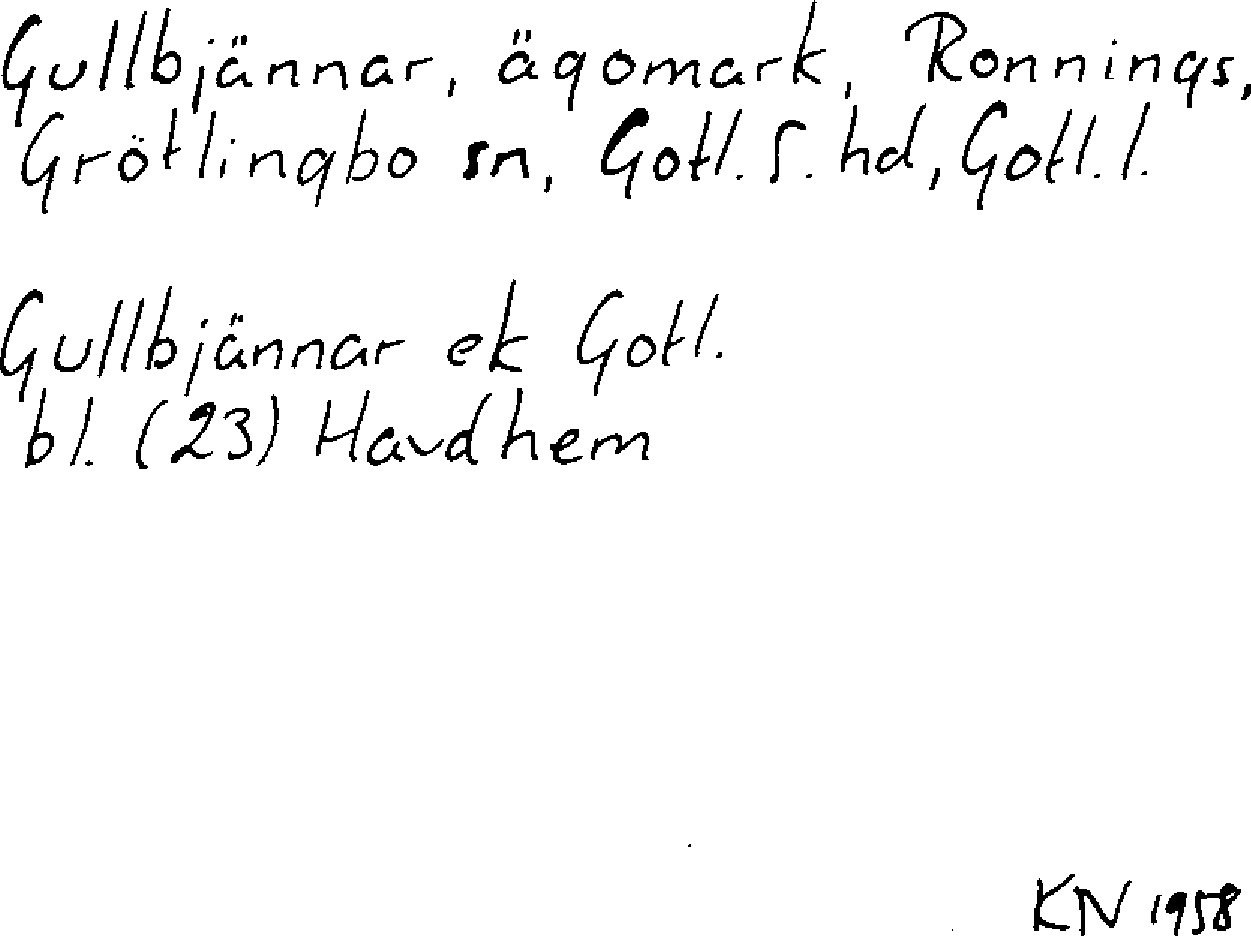 Gullbjännar, ägomark, Ronnings,
Grötlingbo sn, Gotl. S. hd, Gotl. l.
Gullbjännar ek Gotl.
bl. (23) Havdhem
KN 1958